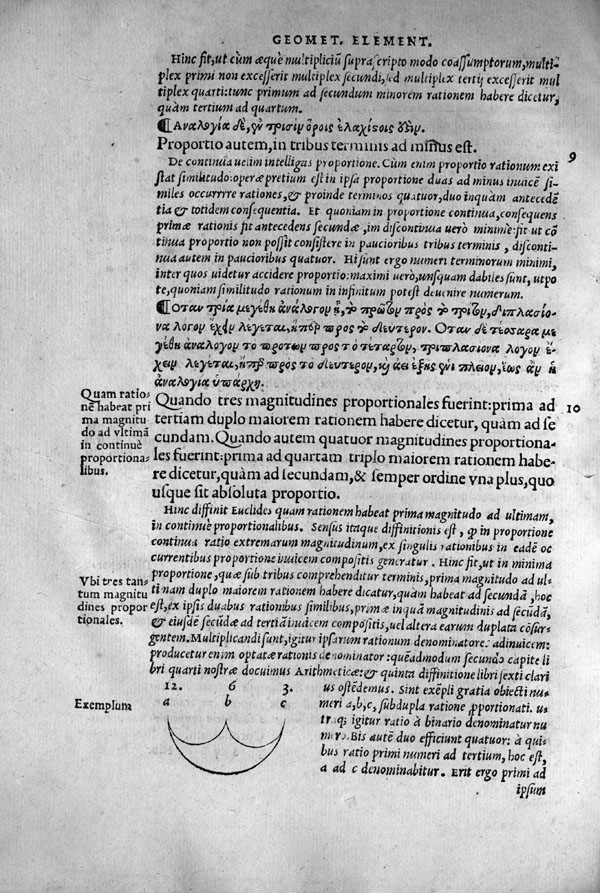 GEOMET. ELEMENT.
Hinc fit, ut cùm æquè multipliciũ suprascripto modo coassumptorum, multi-
plex primi non excesserit multiplex secundi, sed multiplex tertij excesserit mul
tiplex quarti: tunc primum ad secundum minorem rationem habere dicetur,
quàm tertium ad quartum.
¶ Αναλογία δὲ, ἐν τρισὶν ὅροις ἐλαχίστοις ὅξιν.
Proportio autem, in tribus terminis ad minus est.
9
De continua uelim intelligas proportione. Cùm enim proportio rationum exi
stat similitudo: operæpretium est in ipsa proportione duas ad minus inuicẽ si-
miles occurrrre rationes, & proinde terminos quatuor, duo inquàm anteceden
tia & totidem consequentia. Et quoniam in proportione continua, consequens
primæ rationis fit antecedens secundæ, im discontinua uerò minimè: fit ut cõ
tinua proportio non possit consistere in paucioribus tribus terminis, disconti-
nua autem in paucioribus quatuor. Hi sunt ergo numeri terminorum minimi,
inter quos uidetur accidere proportio: maximi uerò, unsquam dabiles sunt, utpo
te, quoniam similitudo rationum in infinitum potest deuenire numerum.
¶ Οταν τρία μεγέθη ἀνάλογον ᾖ, τὸ πρῶτον πρὸς τὸ τρίτον, διπλασίο-
να λόγον ἔχειν λέγεται, ἤπερ πρὸς τὸ δεύτερον. Οταν δὲ τέσσαρα με
γέθη ἀνάλογον τὸ πρότωμ πρὸς τὸ τέταρτον, τριπλασίονα λόγον ἔ-
χειν λέγεται, ἤπερ πρὸς τὸ δεύτερον, καὶ αεὶ ἑξῆς ἑνὶ πλεῖον, ἕως ἂν ἡ
ἀναλογία ὑπάρχῃ.
Quam ratio-
nẽ habeat pri
ma magnitu
do ad vltimã
in continuè
proportiona-
libus.
Quando tres magnitudines proportionales fuerint: prima ad
10
tertiam duplo maiorem rationem habere dicetur, quàm ad se
cundam. Quando autem quatuor magnitudines proportiona-
les fuerint: prima ad quartam triplo maiorem rationem habe-
re dicetur, quàm ad secundam, & semper ordine vna plus, quo
usque sit absoluta proportio.
Hinc diffinit Euclides quam rationem habeat prima magnitudo ad ultimam,
in continuè proportionalibus. Sensus itaque diffinitionis est, ꝙ in proportione
continua ratio extremarum magnitudinum, ex singulis rationibus in eadẽ oc
currentibus proportione inuicem compositis generatur. Hinc fit, ut in minima
proportione, quæ sub tribus comprehenditur terminis, prima magnitudo ad ul-
timam duplo maiorem rationem habere dicatur, quàm habeat ad secundã, hoc
est, ex ipsis duabus rationibus similibus, primæ inquã magnitudinis ad secũdã,
& eiusdẽ secũdæ ad tertiã inuicem compositis, uel altera earum duplata cõsur-
gentem. Multiplicandi sunt, igitur ipsarum rationum denominatores adinuicem:
producetur enim optatæ rationis denominator: quẽadmodum secundo capite li
bri quarti nostræ docuimus Arithmeticæ: & quinta diffinitione libri sexti clari
us ostẽdemus. Sint exẽpli gratia obiecti nu-
meri a, b, c, subdupla ratione ꝓportionati. u-
traq; igitur ratio à binario denominatur nu
mero. Bis autẽ duo efficiunt quatuor: à qui-
bus ratio primi numeri ad tertium, hoc est,
a ad c denominabitur. Erit ergo primi ad
ipsum
Vbi tres tan-
tum magnitu
dines propor
tionales.
Exemplum
12. 6 3.
a b c